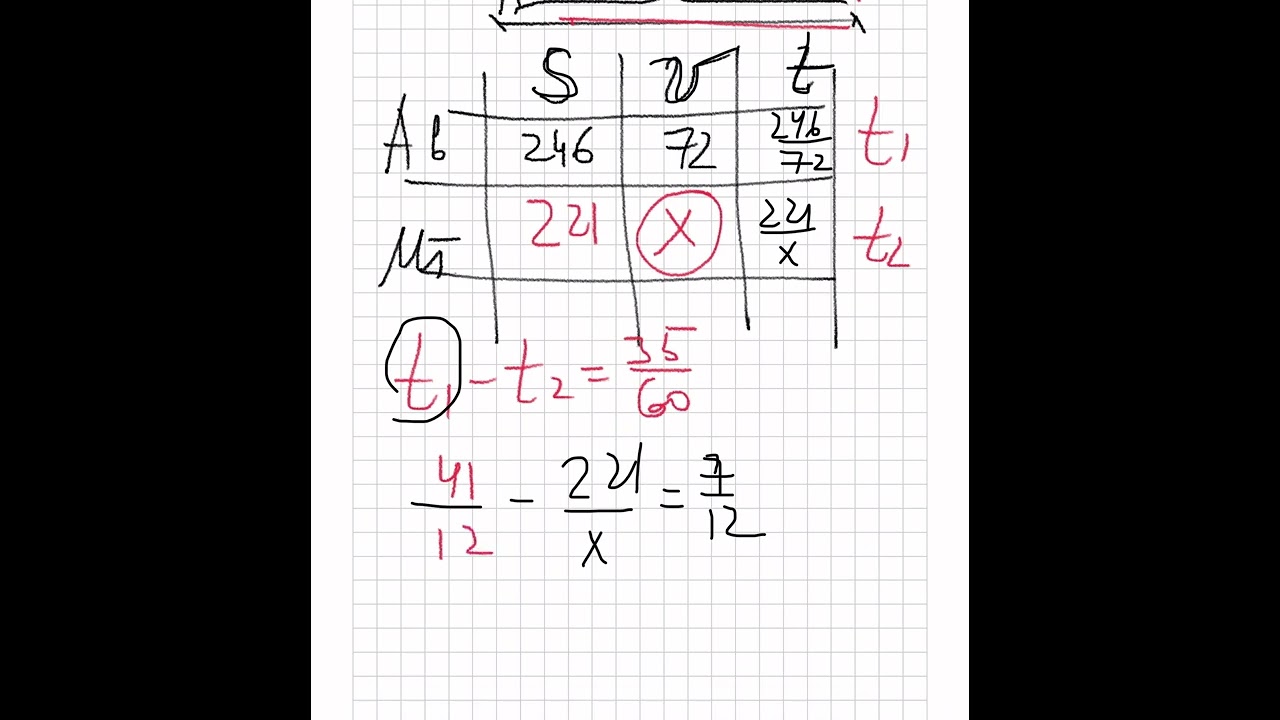 S v t
Ab 246 72 246/72 t₁
221 X 221/x t₂
t₁ - t₂ = 35/60
41/12 - 221/x = 7/12